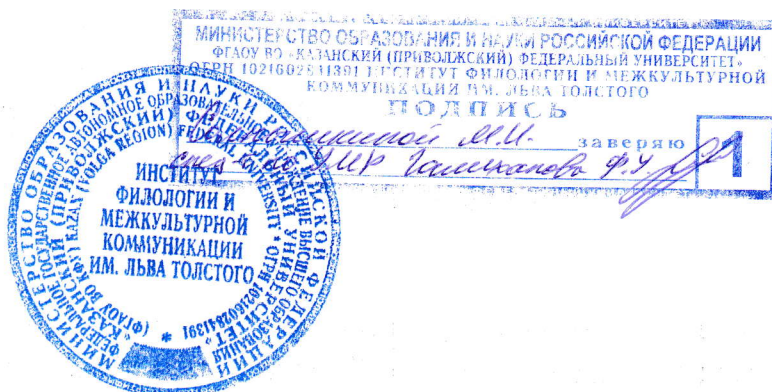 МИНИСТЕРСТВО ОБРАЗОВАНИЯ И НАУКИ РОССИЙСКОЙ ФЕДЕРАЦИИ
ФГАОУ ВО «КАЗАНСКИЙ (ПРИВОЛЖСКИЙ) ФЕДЕРАЛЬНЫЙ УНИВЕРСИТЕТ»
ОГРН 1021602841391 ИНСТИТУТ ФИЛОЛОГИИ И МЕЖКУЛЬТУРНОЙ
КОММУНИКАЦИИ ИМ. ЛЬВА ТОЛСТОГО
ПОДПИСЬ
М.И. заверяю
1
МИНИСТЕРСТВО ОБРАЗОВАНИЯ И НАУКИ РОССИЙСКОЙ ФЕДЕРАЦИИ
ФЕДЕРАЛЬНОЕ ГОСУДАРСТВЕННОЕ АВТОНОМНОЕ ОБРАЗОВАТЕЛЬНОЕ УЧРЕЖДЕНИЕ ВЫСШЕГО ОБРАЗОВАНИЯ
"КАЗАНСКИЙ (ПРИВОЛЖСКИЙ) ФЕДЕРАЛЬНЫЙ УНИВЕРСИТЕТ"
(ФГАОУ ВО КФУ) KAZAN (VOLGA REGION) FEDERAL UNIVERSITY * ОГРН 1021602841391 *
ИНСТИТУТ
ФИЛОЛОГИИ И
МЕЖКУЛЬТУРНОЙ
КОММУНИКАЦИИ
ИМ. ЛЬВА ТОЛСТОГО